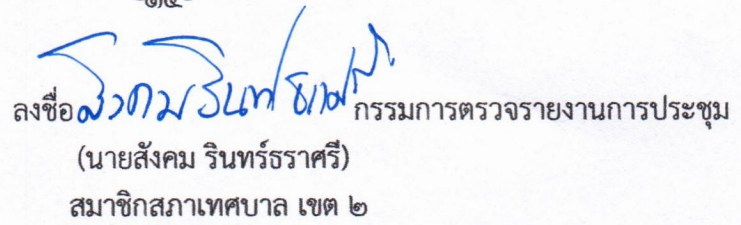 -๑๔-
ลงชื่อ สังคม รินทร์ธราศรี กรรมการตรวจรายงานการประชุม
(นายสังคม รินทร์ธราศรี)
สมาชิกสภาเทศบาล เขต ๒